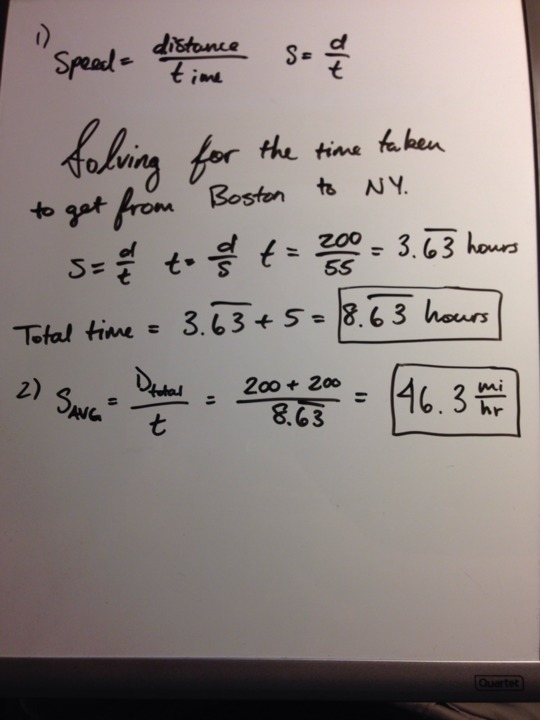 1) Speed = distance/time S = d/t
Solving for the time taken
to get from Boston to NY.
S = d/t t = d/s t = 200/55 = 3.6̅3̅ hours
Total time = 3.6̅3̅ + 5 = 8.6̅3̅ hours
2) S_AVG = D_total/t = 200 + 200/8.6̅3̅ = 46.3 mi/hr
Quartet